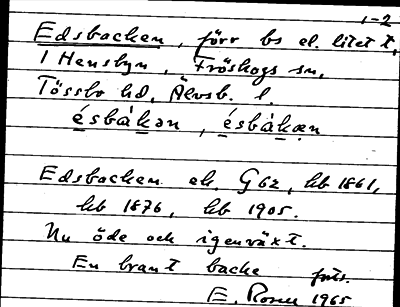 1-2
Edsbacken, förr bs el. litet t.
i Hensbyn, Fröskogs sn,
Tössbo hd, Älvsb. l.
ésbàkən, ésbàkæn
Edsbacken ek. G 62, hb 1861,
hb 1876, hb 1905.
Nu öde och igenväxt.
En brant backe forts.
E. Rosen 1965